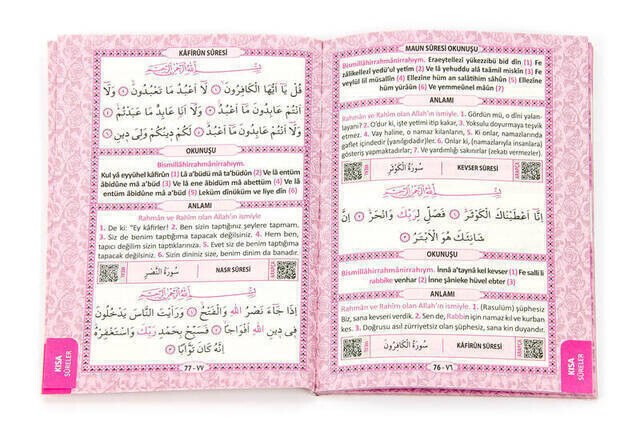 MAUN SÛRESİ OKUNUŞU
Bismillâhirrahmânirrahıym. Eraeytellezî yükezzibü bid dîn (1) Fe
zâlikellezî yedü'ul yetîm (2) Ve lâ yehuddu alâ taâmil miskîn (3) Fe
veylül lil müsallîn (4) Ellezîne hüm an salâtihim sâhûn (5) Ellezîne
hüm yürâûn (6) Ve yemneûnel mâûn (7)
ANLAMI
Rahmân ve Rahîm olan Allah'ın ismiyle. 1. Gördün mü, o dîni yalan-
layanı? 2. O'dur ki, işte yetimi itip kakar, 3. Yoksulu doyurmaya teşvik
etmez. 4. Vay haline, o namaz kılanların, 5. Ki onlar, namazlarında
gaflet içindedir (yanılgıdadır)ler. 6. Onlar ki, (namazlarıyla insanlara)
gösteriş yapmaktadırlar; 7. Ve yardımlığı sakınırlar (zekatı vermezler).
سُورَةُ الْكَوْثَرِ
KEVSER SÛRESİ
بِسْمِ اللّٰهِ الرَّحْمٰنِ الرَّحِيمِ
اِنَّٓا اَعْطَيْنَاكَ الْكَوْثَرَ ﴿١﴾ فَصَلِّ لِرَبِّكَ وَانْحَرْ ﴿٢﴾ اِنَّ
شَانِئَكَ هُوَ الْاَبْتَرُ ﴿٣﴾
OKUNUŞU
Bismillâhirrahmânirrahıym. İnnâ a'taynâ kel kevser (1) Fe salli li
rabbike venhar (2) İnne şânieke hüvel ebter (3)
ANLAMI
Rahmân ve Rahîm olan Allah'ın ismiyle. 1. (Rasulüm) şüphesiz
Biz, sana kevseri verdik. 2. Sen de, Rabbin için namaz kıl ve kurban
kes. 3. Doğrusu asıl zürriyetsiz olan şüphesiz, sana kin duyandır.
سُورَةُ الْكَافِرُونَ
KÂFİRÛN SÛRESİ
76 - ٧٦
KISA
SÛRELER
KÂFİRÛN SÛRESİ
بِسْمِ اللّٰهِ الرَّحْمٰنِ الرَّحِيمِ
قُلْ يَٓا اَيُّهَا الْكَافِرُونَ ﴿١﴾ لَٓا اَعْبُدُ مَا تَعْبُدُونَ ﴿٢﴾ وَلَٓا
اَنْتُمْ عَابِدُونَ مَٓا اَعْبُدُ ﴿٣﴾ وَلَٓا اَنَا عَابِدٌ مَا عَبَدْتُمْ ﴿٤﴾
وَلَٓا اَنْتُمْ عَابِدُونَ مَٓا اَعْبُدُ ﴿٥﴾ لَكُمْ دِينُكُمْ وَلِيَ دِينِ ﴿٦﴾
OKUNUŞU
Bismillâhirrahmânirrahıym.
Kul yâ eyyühel kâfirûn (1) Lâ a'büdü mâ ta'budûn (2) Ve lâ entüm
âbidûne mâ a'büd (3) Ve lâ ene âbidün mâ abettüm (4) Ve lâ
entüm âbidûne mâ a'büd (5) Leküm dînüküm ve liye dîn (6)
ANLAMI
Rahmân ve Rahîm olan Allah'ın ismiyle
1. De ki: "Ey kâfirler! 2. Ben sizin taptığınız şeylere tapmam.
3. Siz de benim taptığıma tapacak değilsiniz. 4. Hem ben,
tapıcı değilim sizin taptıklarınıza. 5. Evet siz de benim taptığıma
tapacak değilsiniz. 6. Sizin dininiz size, benim dinim da banadır.
سُورَةُ النَّصْرِ
NASR SÛRESİ
بِسْمِ اللّٰهِ الرَّحْمٰنِ الرَّحِيمِ
اِذَا جَٓاءَ نَصْرُ اللّٰهِ وَالْفَتْحُ ﴿١﴾ وَرَاَيْتَ النَّاسَ يَدْخُلُونَ
فِي دِينِ اللّٰهِ اَفْوَاجًا ﴿٢﴾ فَسَبِّحْ بِحَمْدِ رَبِّكَ وَاسْتَغْفِرْهُ
اِنَّهُ كَانَ تَوَّابًا ﴿٣﴾
77 - ٧٧
KISA
SÛRELER